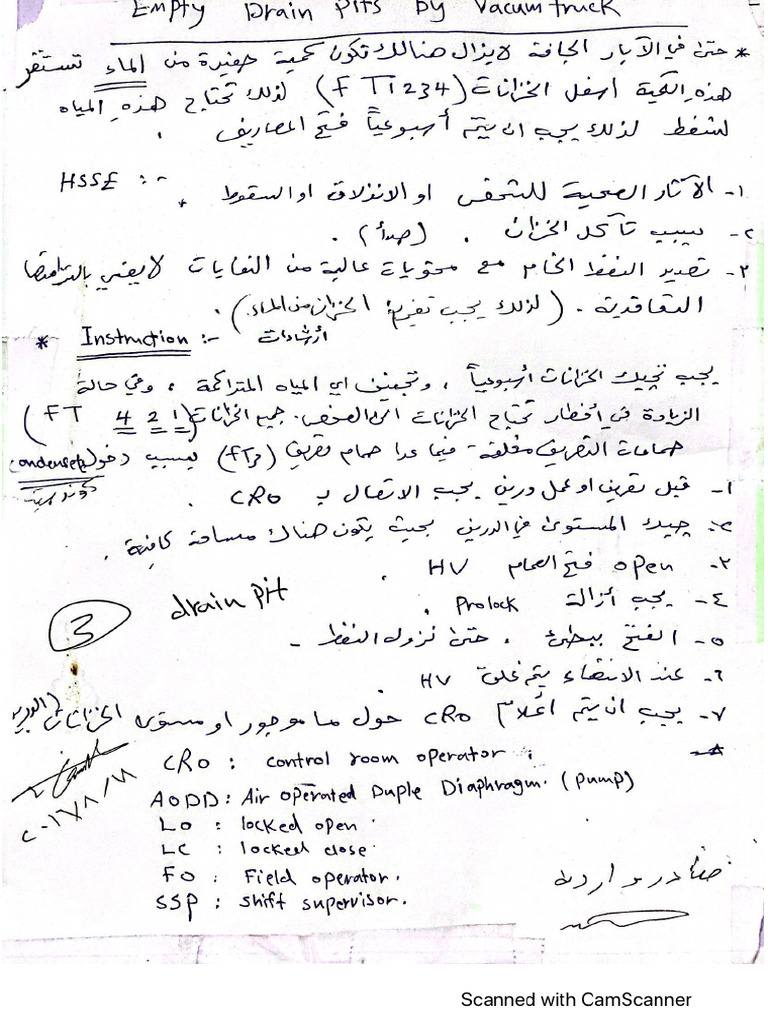 Empty Drain Pits by Vacum truck
* حتى في الآبار الجافة لايزال هنالك تكون كمية صغيرة من الماء تستقر
هذه الكمية اسفل الخزانات (FT1234) لذلك تحتاج هذه المياه
لشفط لذلك يجب ان يتم أسبوعياً فتح المصاريف .
HSSE :-
١- الآثار الصحية للشخص او الانزلاق او السقوط .
٢- يسبب تآكل الخزان . (صدأ) .
٣- تصدير النفط الخام مع محتويات عالية من النفايات لايفي
التعاقدية . (لذلك يجب تفريغ الخزان من الماء) .
* Instruction :- أرشادات
يجب تچيك الخزانات أسبوعياً ، وتجفيف اي المياه المتراكمة ، وفي حالة
الزيادة في أمطار تحتاج الخزانات الى الفحص . جميع الخزانات (FT 421)
صمامات التصريف مغلقة - فيما عدا صمام تصريف (FT3) بسبب دخول condenset
١- قبل تفريغ او عمل درين يجب الاتصال بـ CRO .
٢- چيك المستوى في الدرين بحيث يكون هناك مسافة كافية .
٣- open فتح الصمام HV .
٤- يجب أزالة Prolock .
٥- الفتح ببطئ . حتى نزول النفط -
drain pit
3
٦- عند الانتهاء يتم غلق HV
٧- يجب ان يتم أعلام CRO حول ما موجود او مستوى الخزانات (الدرين)
CRO : control room operator .
AODD : Air operated Duple Diaphragm . (Pump)
LO : locked open .
LC : locked close .
FO : Field operator .
SSP : shift supervisor .
Scanned with CamScanner